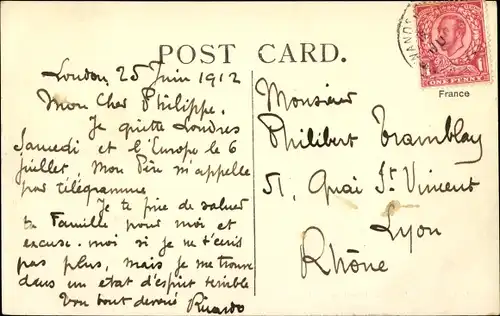 POST CARD.
London 25 Juin 1912
Mon Cher Philippe.
Je quitte Londres
Samedi et l'Europe le 6
juillet, Mon Père m'appelle
par télégramme
Je te prie de saluer
ta Famille pour moi et
excuse-moi si je ne t'écris
pas plus, mais je me trouve
dans un etat d'esprit terrible
Ton tout dévoué Ricardo
ONE PENNY
France
Monsieur
Philibert Tramblay
51, Quai St Vincent
Lyon
Rhône